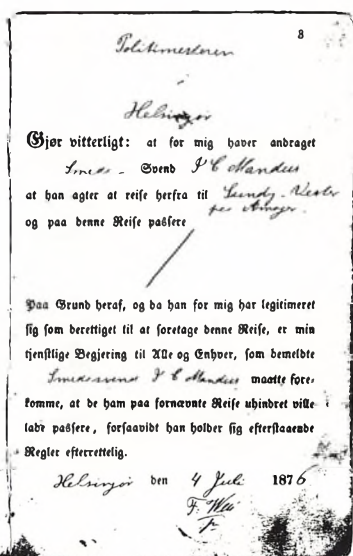 3
Politimesteren
i
Helsingør
Gjør vitterligt: at for mig haver andraget
Smede- Svend I C Mandus
at han agter at reise herfra til Sundby-Vester
paa Amager.
og paa denne Reise passere
Paa Grund heraf, og da han for mig har legitimeret
sig som berettiget til at foretage denne Reise, er min
tjenstlige Begjering til Alle og Enhver, som bemeldte
Smedesvend I C Mandus maatte fore-
komme, at de ham paa fornævnte Reise uhindret ville
lade passere, forsaavidt han holder sig efterstaaende
Regler efterrettelig.
Helsingør den 4 Juli 1876
F.